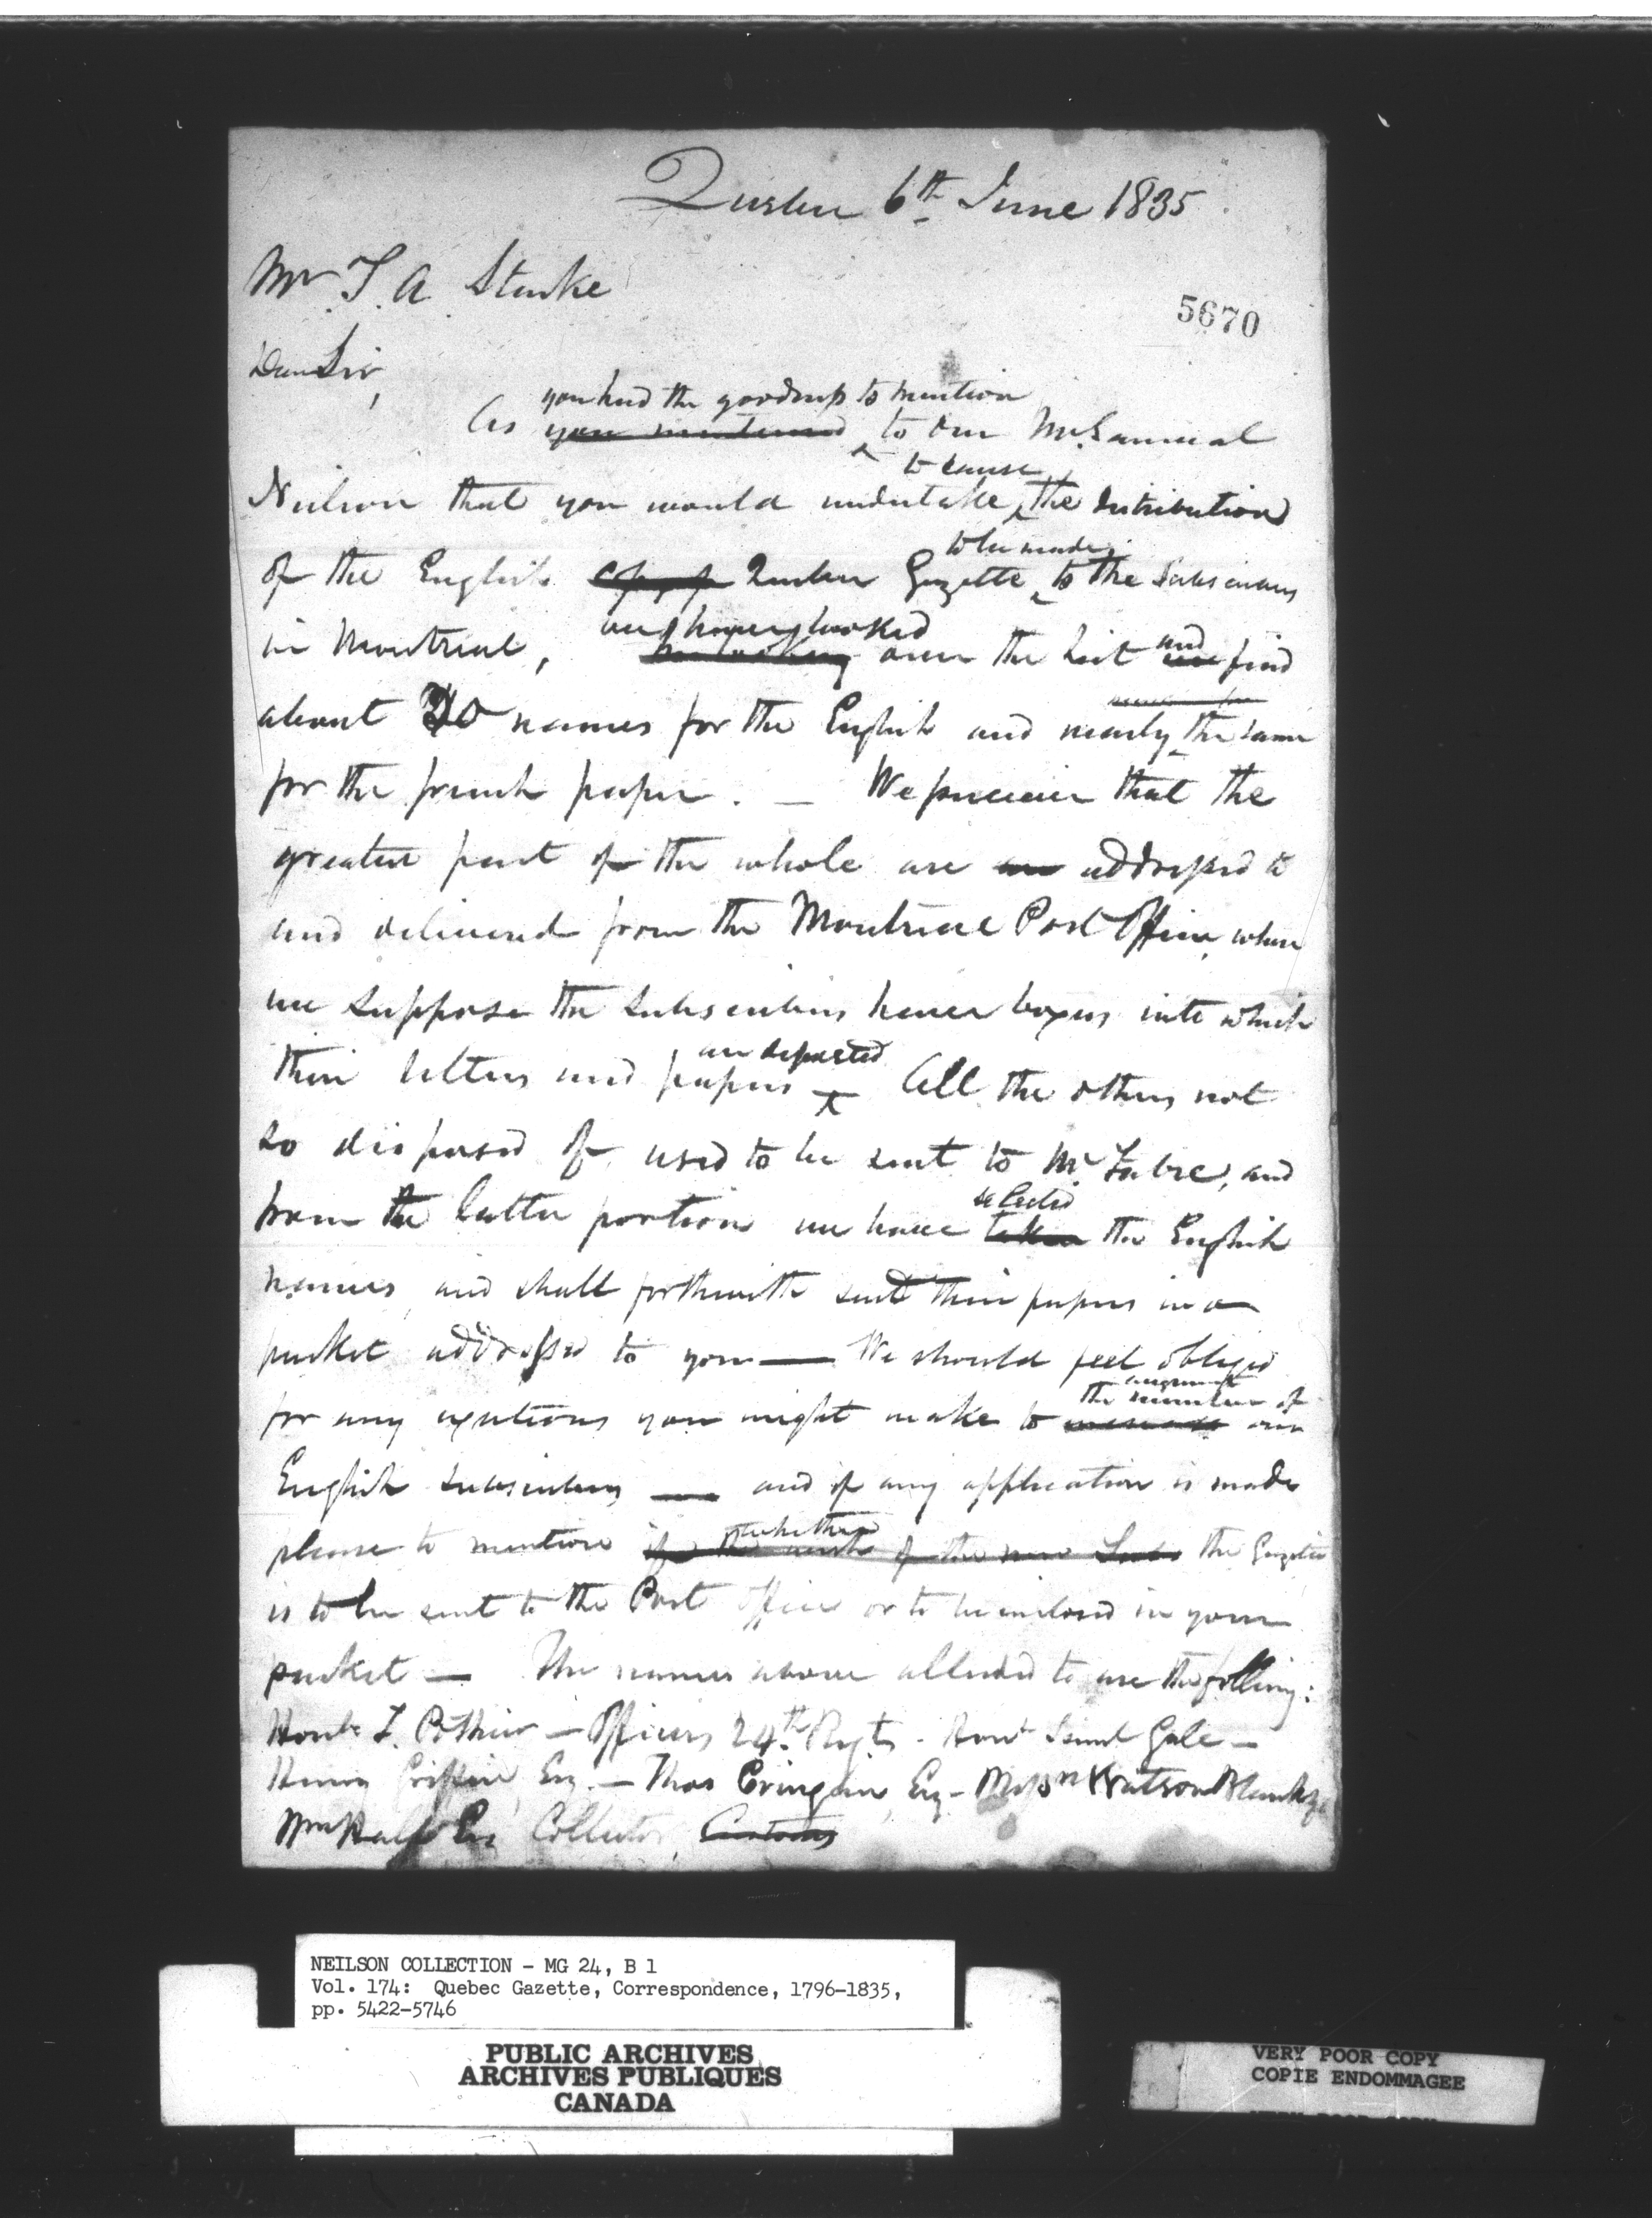 Quebec 6th June 1835
Mr. T. A. Starke
5670
Dear Sir,
you had the goodness to mention
As you mentioned to our Mr. Samuel
to cause
Neilson that you would undertake the distribution
to be made
of the English copy of Quebec Gazette to the Subscribers
we have looked
in Montreal, on looking over the list and we find
about 20 names for the English and nearly the same
for the french paper. — We perceive that the
greater part of the whole are are addressed to
and delivered from the Montreal Post Office, where
we suppose the subscribers have boxes into which
are deposited
their letters and papers All the others not
so disposed of, used to be sent to Mr Fabre, and
selected
from the latter portion we have taken the English
names, and shall forthwith send their papers in a
packet addressed to you — We should feel obliged
augment
the number of
for any exertions you might make to increase our
English subscribers — and if any application is made
whether
please to mention if the of the new Subs the Gazette
is to be sent to the Post Office or to be inclosed in your
packet — The names above alluded to are the following:
Honble T. Pothier — Officers 24th Regt. - Honr Saml Gale —
Henry Griffin, Esq. — Thos Cringan, Esq -  Watson
Wm Hall Esq Collector, Customs
NEILSON COLLECTION - MG 24, B 1
Vol. 174: Quebec Gazette, Correspondence, 1796-1835,
pp. 5422-5746
PUBLIC ARCHIVES
ARCHIVES PUBLIQUES
CANADA
VERY POOR COPY
COPIE ENDOMMAGEE
VERY POOR COPY